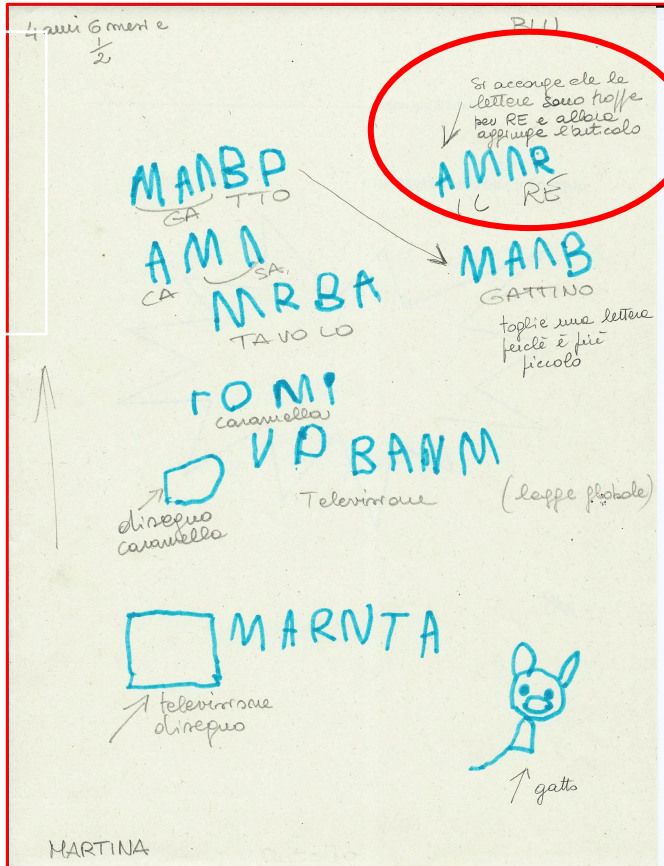 4 anni 6 mesi e
1
2
BLU
Si accorge che le
lettere sono troppe
per RE e allora
aggiunge l'articolo
MANBP
GA TTO
AMNR
IL RE
AMN
CA SA
MANB
GATTINO
MRBA
TA VO LO
toglie una lettera
perché è più
piccolo
roMi
caramella
VP BANM
Televisione (legge globale)
disegno
caramella
MARNTA
televisione
disegno
gatto
MARTINA